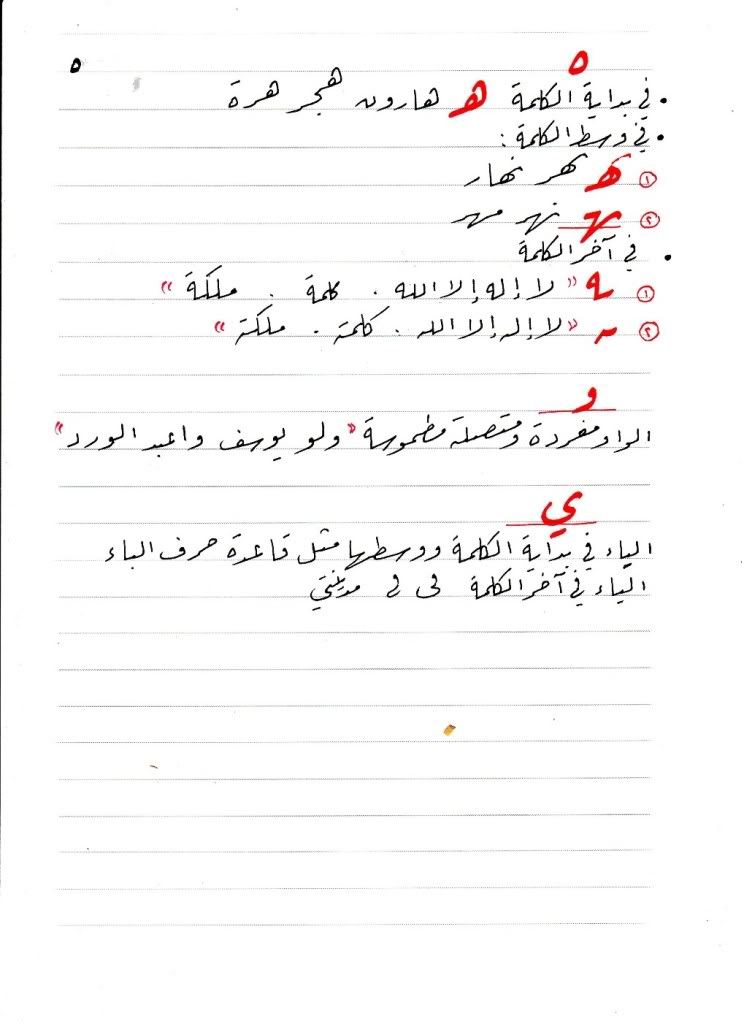 ٥
ه
• في بداية الكلمة هـ هارون هجر هرة
• في وسط الكلمة :
① ـهـ كهر نهار
② ـهـ نهر مهر
• في آخر الكلمة
① ـه « لا إله إلا الله . كلمة . ملكة »
② ـه « لا إله إلا الله . كلمة . ملكة »
و
الواو مفردة ومتصلة مطموسة « ولو يوسف واعبد الورد »
ي
الياء في بداية الكلمة ووسطها مثل قاعدة حرف الباء
الياء في آخر الكلمة لى في مدينتي